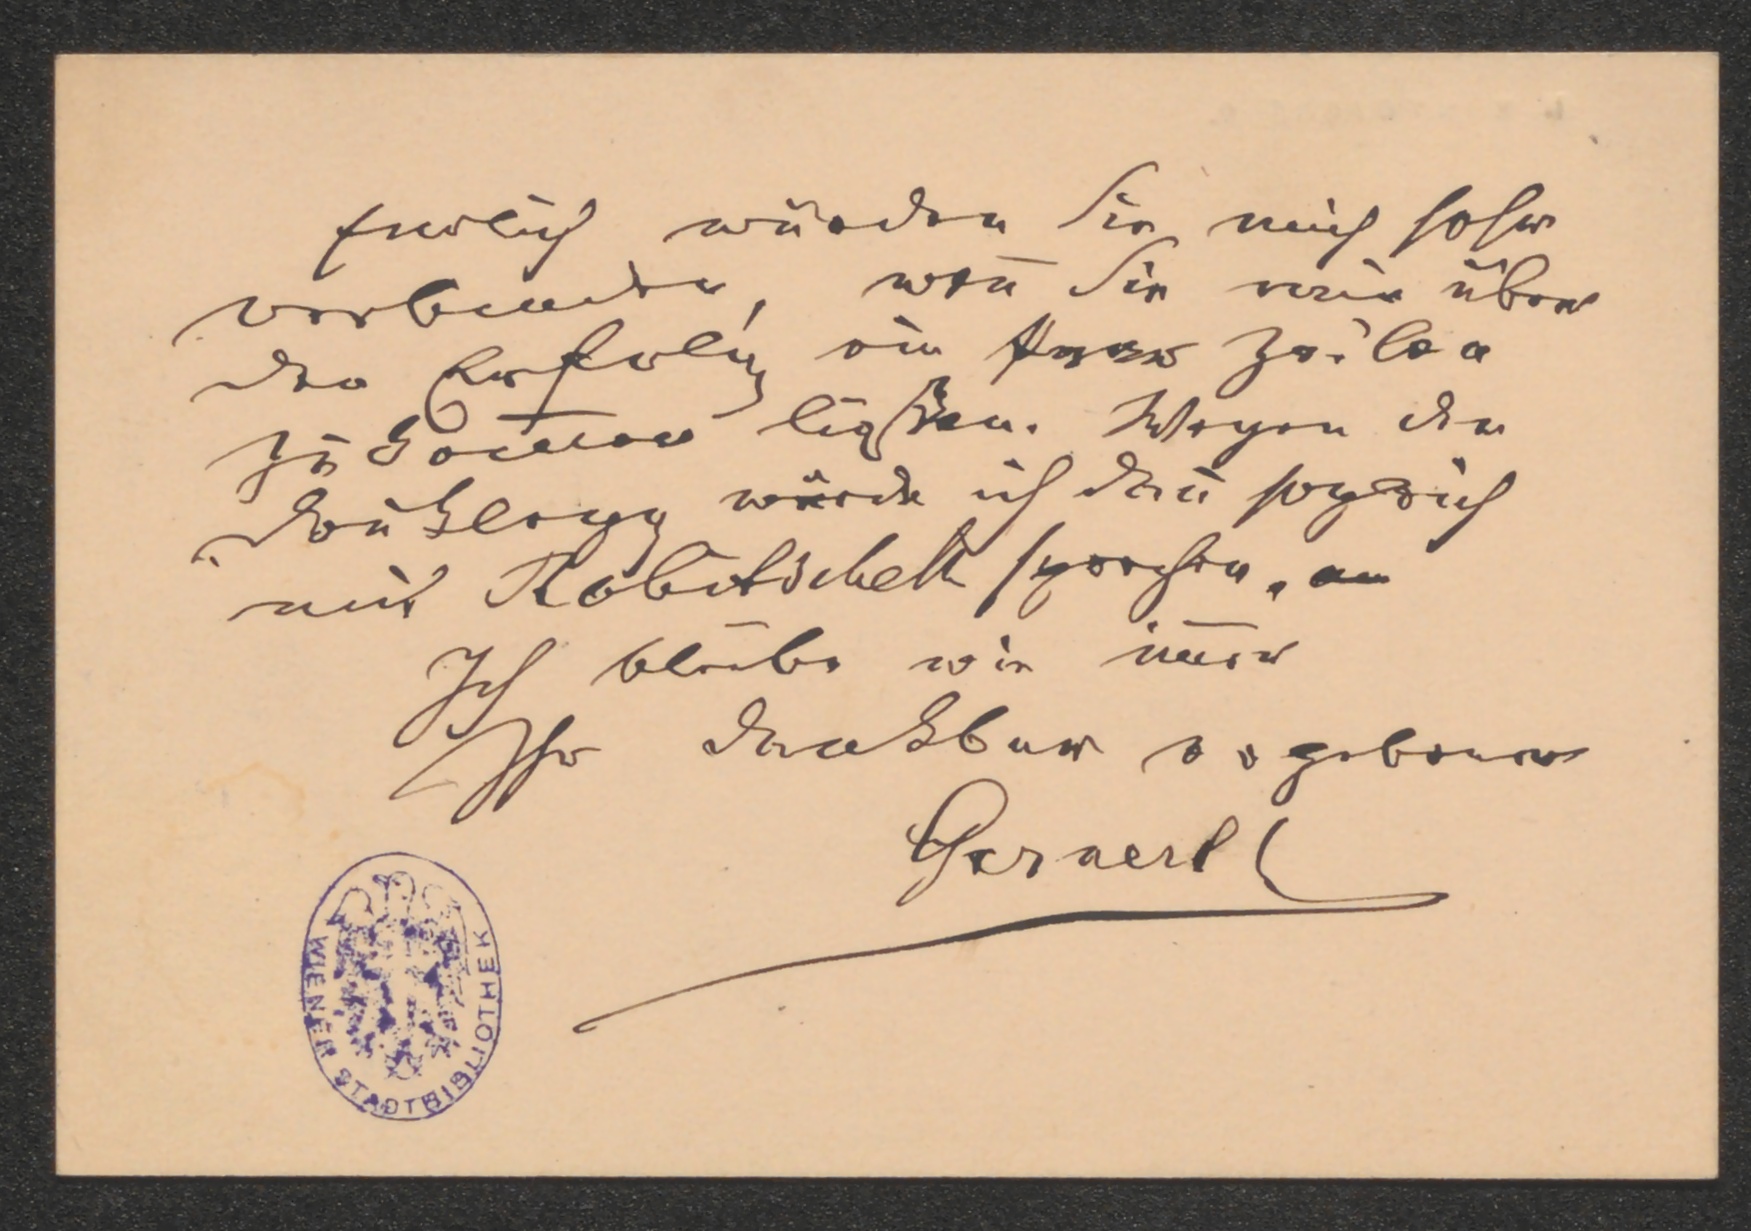 Freilich würden Sie mich sehr
verbinden, weñ Sie mir über
den Erfolg ein paar Zeilen
zukom̅en ließen. Wegen der
Drucklegg würde ich dañ sogleich
mit Robitschek sprechen.
Ich bleibe wie im̅er
Ihr dankbar ergebener
WIENER STADTBIBLIOTHEK